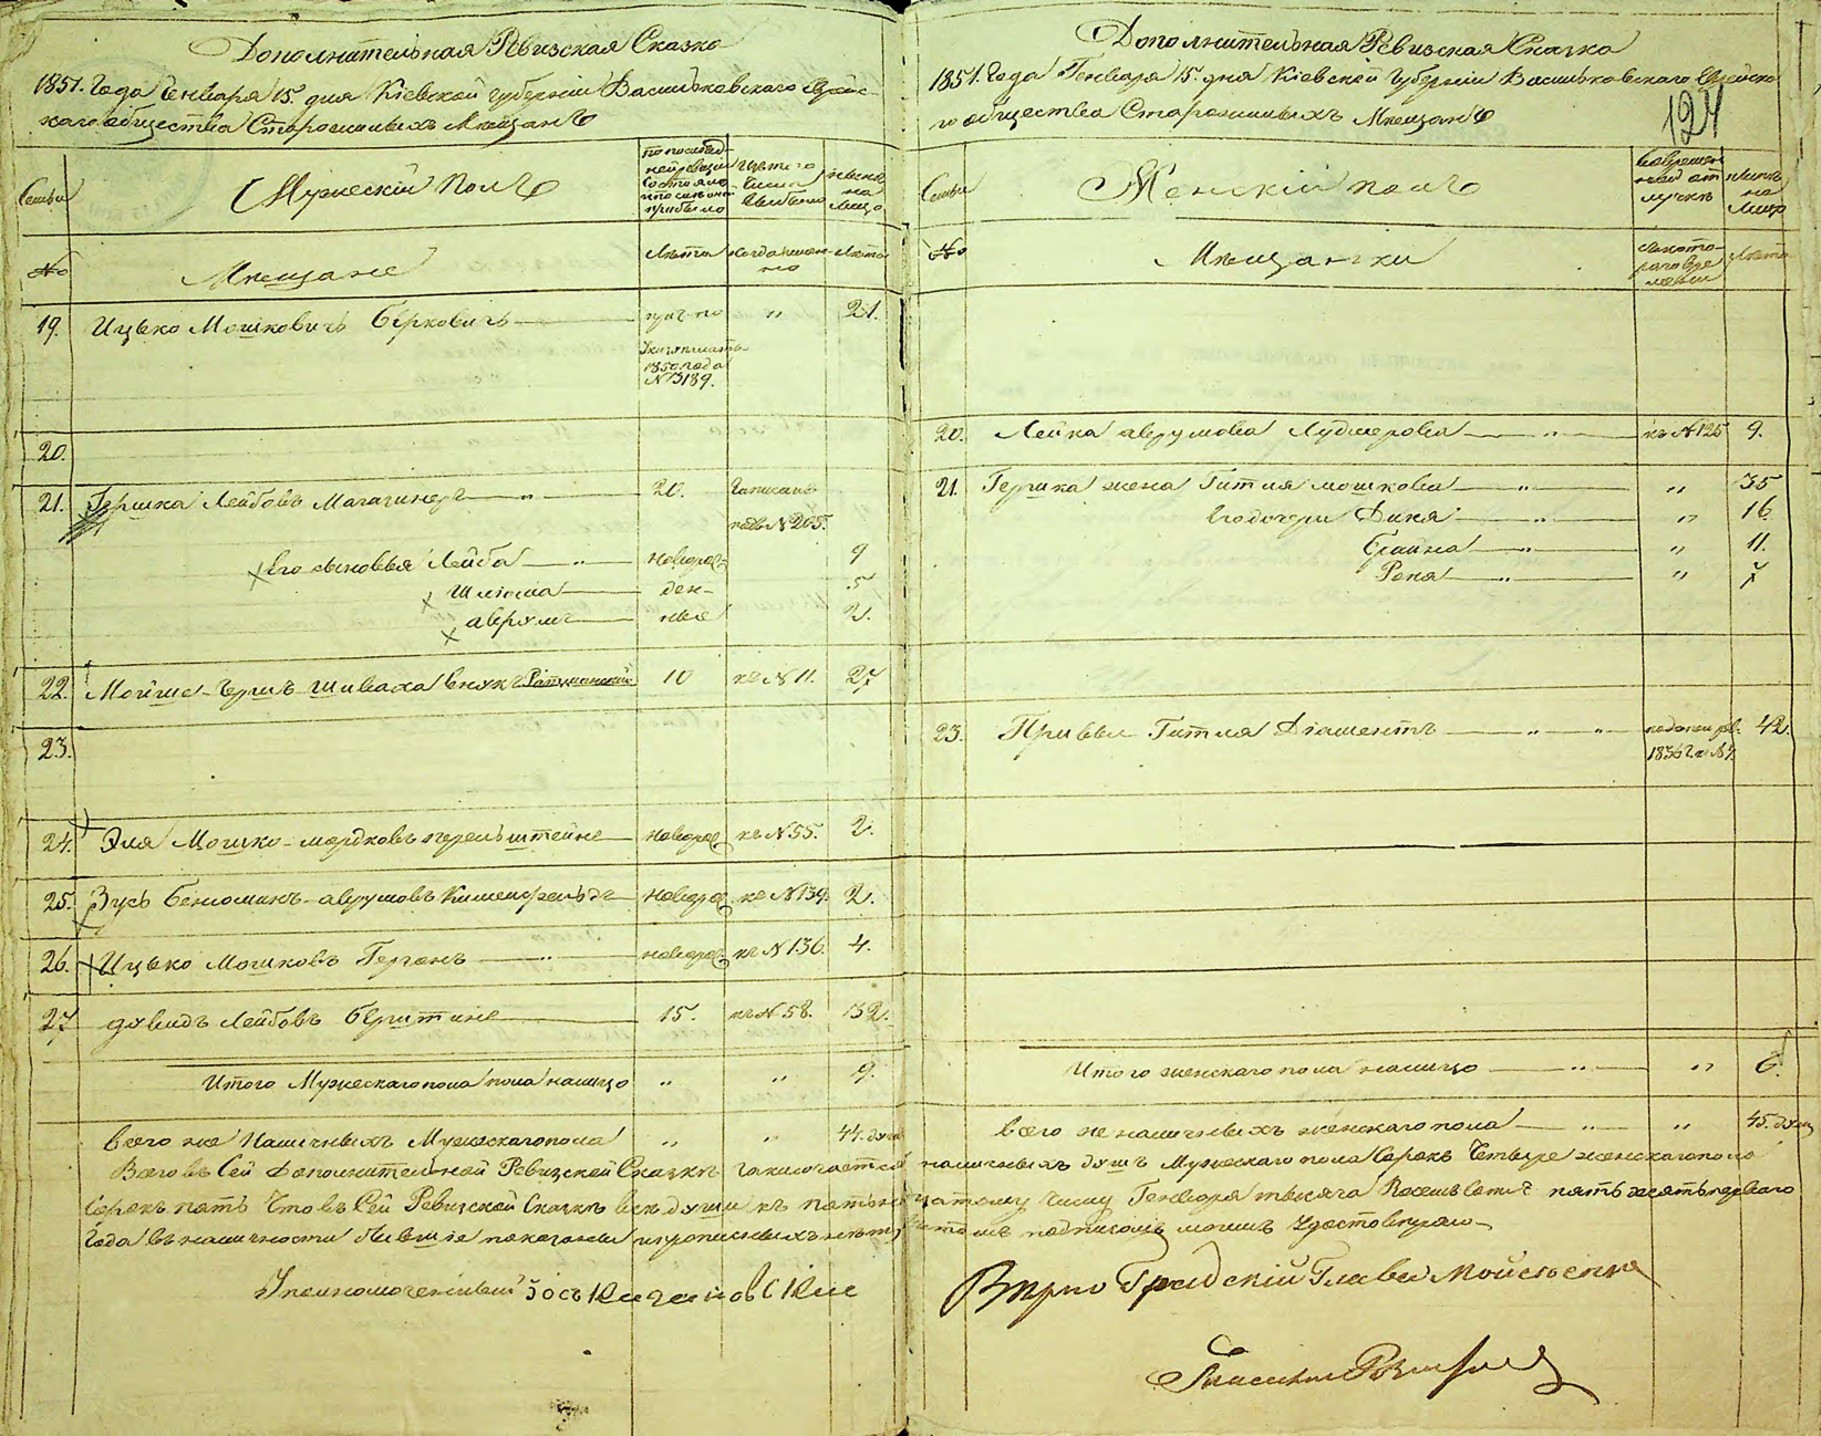 Дополнительная Ревизская Сказка
1851. Года Генваря 15. дня Кіевской губерніи Васильковскаго Еврейс-
каго общества Старожилыхъ Мѣщанъ
Семьи
Мужескій полъ
по послѣд-
ней ревизіи
состояло
и послѣ оной
прибыло
Изъ того
числа
выбыло
нынѣ
на
лицо
№
Мѣщане
Лѣта
когда имен-
но
Лѣта
19. Ицько Мошковичъ Берковичъ " 21.
1850 года
N 13189.
20.
21. Гершка Лейбовъ Магазинеръ " 20. Записанъ
подъ N 205.
Его сыновья Лейба " новорож- 9
Шлиома ден- 5
Аврумъ ные 2.
22. Мойше-Герш Шиваха внукъ Ратманскій 10 къ N 11. 27
23.
24. Эля Мошко-Мордковъ Перельштейнъ новорож къ N 55. 2.
25. Зусь Бенюминъ-Аврумовъ Кименфельдъ новорож къ N 139. 2.
26. Ицько Мошковъ Герганъ " новорож къ N 136. 4.
27 Дувидъ Лейбовъ Берштинъ 15. къ N 58. 32.
Итого Мужескаго пола на лицо " " 9.
Всего же Наличныхъ Мужескаго пола " " 44. душ
Дополнительная Ревизская Сказка
1851. Года Генваря 15. дня Кіевской Губерніи Васильковскаго Еврейска
го общества Старожилыхъ Мѣщанъ
124
Семьи
Женскій полъ
Во времен
ной от
лучкѣ
нынѣ
на
лицо
№
Мѣщанки
Съ кото-
раго вре
мени
Лѣта
20. Лейка Аврумова Лудмерова " къ N 125 9.
21. Гершка жена Гитля Мошкова " " 35
Его дочери Диня " " 16.
Брайна " " 11.
Рена " " 7
23. Привви Гитля Діаментъ " " 42.
1836 г. N 7.
Итого женскаго пола на лицо " " 6.
Всего же наличныхъ женскаго пола " " 45. душ
Всего въ Сей Дополнительной Ревизской Сказкѣ заключается наличныхъ душъ Мужескаго пола Сорокъ Четыре женскаго пола
Сорокъ пять Что въ Сей Ревизской Сказкѣ всѣ души къ пятнадцатому числу Генваря тысяча Восемь Сотъ пять десять перваго
Года въ наличности бывшіе показаны и прописныхъ нѣтъ, въ томъ подписомъ моимъ Удостовѣряю
Уполномоченный
Вѣрно Градскій Глава Мойсеенко